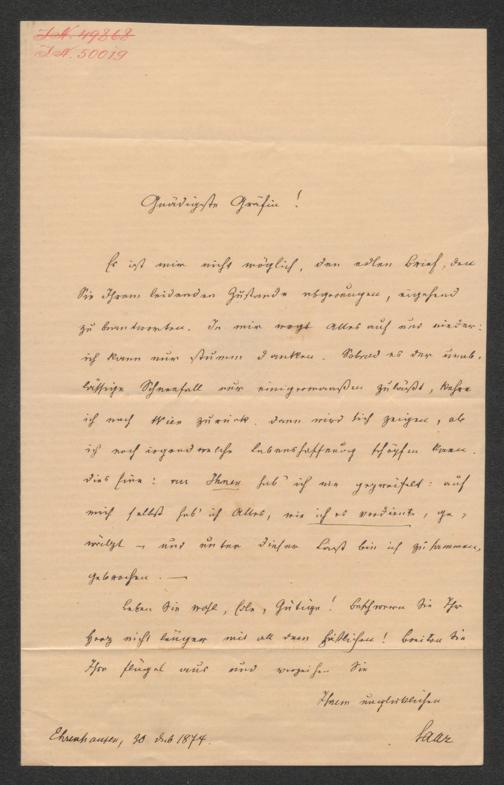 I.N. 49868
I.N. 50019
Gnädigste Gräfin!
Es ist mir nicht möglich, den edlen Brief, den
Sie Ihrem leidenden Zustande abgerungen, eingehend
zu beantworten. In mir wogt Alles auf und nieder:
ich kann nur stumm danken. Sobald es der unab-
lässige Schneefall nur einigermaaßen zuläßt, kehre
ich nach Wien zurück. Dann wird sich zeigen, ob
ich noch irgend welche Lebenshoffnung schöpfen kann.
Dies Eine: an Ihnen hab' ich nie gezweifelt: auf
mich selbst hab' ich Alles, wie ich es verdiente, ge-
wälzt – und unter dieser Last bin ich zusammen-
gebrochen. —
Leben Sie wohl, Edle, Gütige! Beschweren Sie Ihr
Herz nicht länger mit all dem Häßlichen! Breiten Sie
Ihre Flügel aus und verzeihen Sie
Ihrem unglücklichen
Ehrenhausen, 30 Dec 1874.
Saar